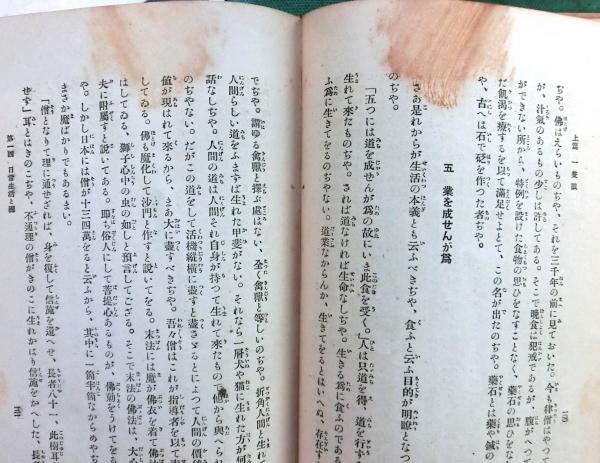 上篇 一隻眼
ぢや。佛はえらいものぢや、それを三千年の前に見ておいた。今も律僧はやつて
が、汁氣のあるもの少しは許してある。そこで晩食は犯戒であるが、腹がへつて
ができない所から、特例を設けた食物の思ひをなすことなく、藥石の思ひをな
だ飢渇を療するを以て滿足せよとて、この名が出たのぢや。藥石とは藥や鍼の
や、古へは石で砭を作つた者ぢや。
五 業を成せんが爲
さあ是れからが生活の本義とも云ふべきぢや、食ふと云ふ目的が明瞭となつ
のぢや。
「五つには道を成せんが爲の故にいま此食を受く。」人は只道を得、道を行ずる
生れて來たものぢや。されば道なければ生命なしぢや。生きる爲に食ふのである
ふ爲に生きてをるのぢやない。道業なからんか、生きてをるとはいへぬ、存在す
でぢや。謂ゆる禽獸と擇ぶ所はない、全く禽獸と等しいのぢや。折角人間と生れて
人間らしい道をふまずば生れた甲斐がない。それなら一層犬や猫に生れた方が何
話なしぢや。人間の道は人間それ自身が持つて生れて來たもので他から與へられ
のぢやない。だがこの道をして活機縱橫に盡すと盡さゞるとによつて人間の價値
値が現はれて來るから、まあ大に盡すべきぢや。吾々僧はこれが指導者を以て
してゐる。佛も魔化して沙門と作すと說いてをる。末法には魔が佛衣を着て佛
はしてゐる、獅子心中の虫の如しと預言してござる。そこで末法の佛法は、大
夫に附屬すと說いてある。卽ち俗人にして菩提心あるものが、佛勅をうけてを
や。しかし日本には僧が十三四萬をると云ふから、其中に一箇半箇なからめやぢ
まさか魔ばかりでもあるまい。
「僧となりて理に通ぜされば、身を復して信施を還へせ、長者八十一、此樹耳
せず」耳とはきのこぢや、不通理の僧がきのこに生れかはり信施をかへした、長
第一四・日常生活と禪